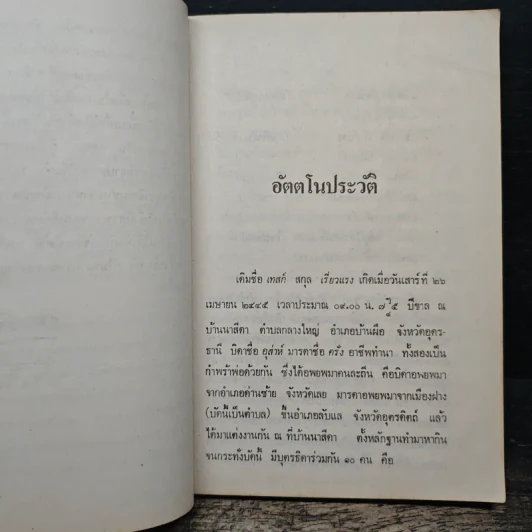 อัตตโนประวัติ
เดิมชื่อ เทสก์ สกุล เรี่ยวแรง เกิดเมื่อวันเสาร์ที่ ๒๖
เมษายน ๒๔๔๕ เวลาประมาณ ๐๙.๐๐ น. ปีขาล ณ
บ้านนาสีดา ตำบลกลางใหญ่ อำเภอบ้านผือ จังหวัดอุดร-
ธานี บิดาชื่อ อุส่าห์ มารดาชื่อ ครั่ง อาชีพทำนา ทั้งสองเป็น
กำพร้าพ่อด้วยกัน ซึ่งได้อพยพมาคนละถิ่น คือบิดาอพยพมา
จากอำเภอด่านซ้าย จังหวัดเลย มารดาอพยพมาจากเมืองฝาง
(บัดนี้เป็นตำบล) ขึ้นอำเภอลับแล จังหวัดอุตรดิตถ์ แล้ว
ได้มาแต่งงานกัน ณ ที่บ้านนาสีดา ตั้งหลักฐานทำมาหากิน
จนกระทั่งบัดนี้ มีบุตรธิดาร่วมกัน ๑๐ คน คือ